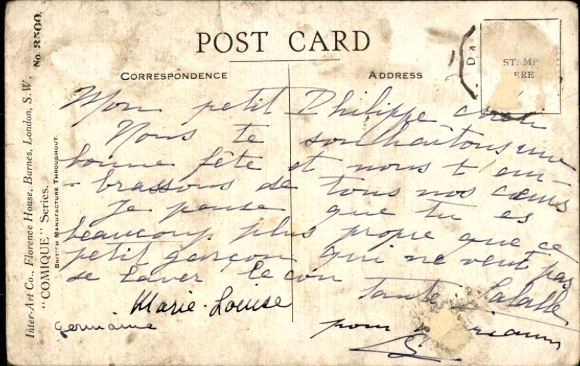 POST CARD
CORRESPONDENCE
ADDRESS
STAMP
ERE
Inter-Art Co., Florence House, Barnes, London, S.W.
"COMIQUE" Series.
No. 3500.
BRIT H MANUFACTURE THROUGHOUT.
Mon petit Philippe
Nous te souhaitons une
bonne fête et nous t'em
-brassons de tous nos cœurs
Je pense que tu es
beaucoup plus propre que ce
petit garçon qui ne veut pas
se laver
Tante
Marie-Louise
Germaine
pour